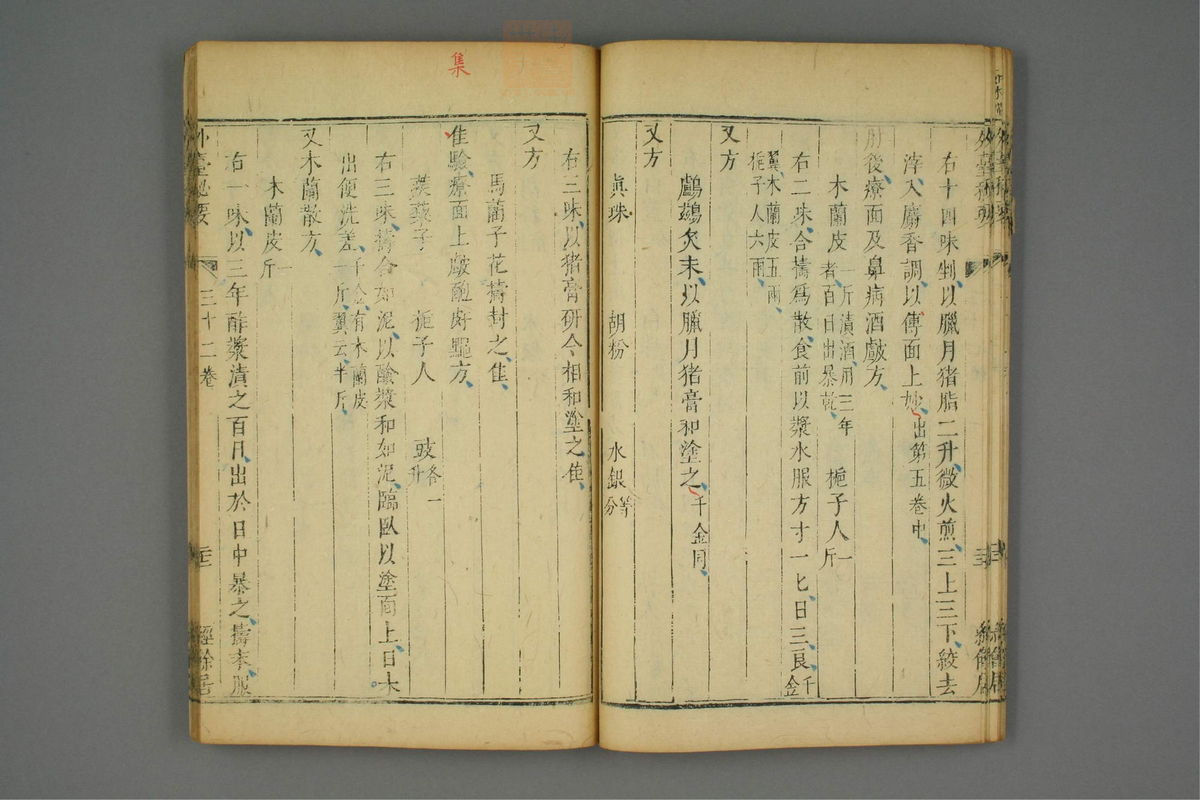 右十四味剉以臘月猪脂二升微火煎三上三下絞去
滓入麝香調以傅面上妙出第五卷中
肘後療面及鼻病酒皶方
木蘭皮一斤漬酒用三年者百日出暴乾 梔子人一斤
右二味合擣爲散食前以漿水服方寸一匕日三良千金
翼木蘭皮五兩梔子人六兩
又方
鸕鷀矢末以臘月猪膏和塗之千金同
又方
眞珠 胡粉 水銀等分
右三味以猪膏研令相和塗之佳
又方
馬藺子花擣封之佳
佳驗療面上皶皰皯䵟方
蒺藜子 梔子人 豉各一升
右三味擣合如泥以酢漿和如泥臨臥以塗面上日未
出便洗差千金有木蘭皮一斤翼云半斤
又木蘭散方
木蘭皮一斤
右一味以三年酢漿漬之百日出於日中暴之擣末服
外臺秘要 三十二卷 經餘居
集